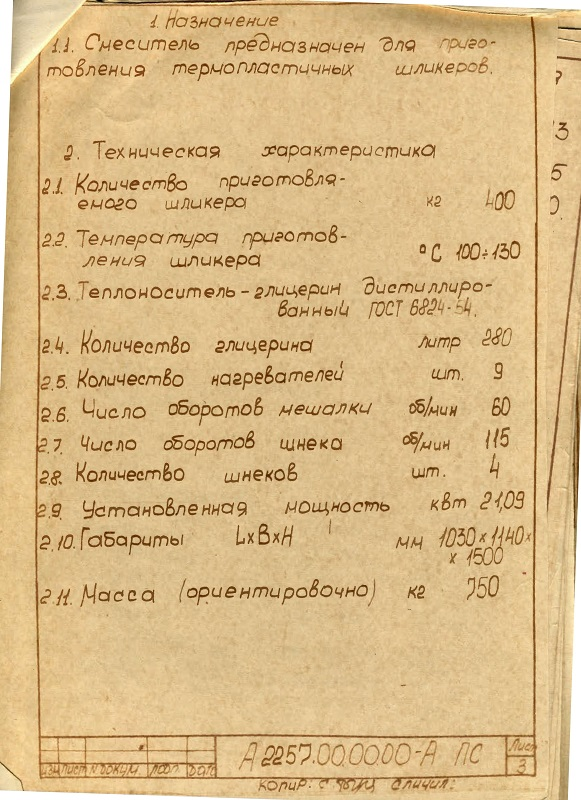 1. Назначение
1.1. Смеситель предназначен для приго-
товления термопластичных шликеров.
2. Техническая характеристика
2.1. Количество приготовля-
емого шликера кг 400
2.2. Температура приготов-
ления шликера °С 100÷130
2.3. Теплоноситель-глицерин дистиллиро-
ванный ГОСТ 6824-54.
2.4. Количество глицерина литр 280
2.5. Количество нагревателей шт. 9
2.6. Число оборотов мешалки об/мин 60
2.7. Число оборотов шнека об/мин 115
2.8. Количество шнеков шт. 4
2.9. Установленная мощность квт 21,09
2.10. Габариты L×B×H мм 1030×1140×
×1500
2.11. Масса (ориентировочно) кг 750
А2257.00.00.00-А ПС
Лист
3
Изм Лист N докум. Подп. Дата
Копир: Сличил: